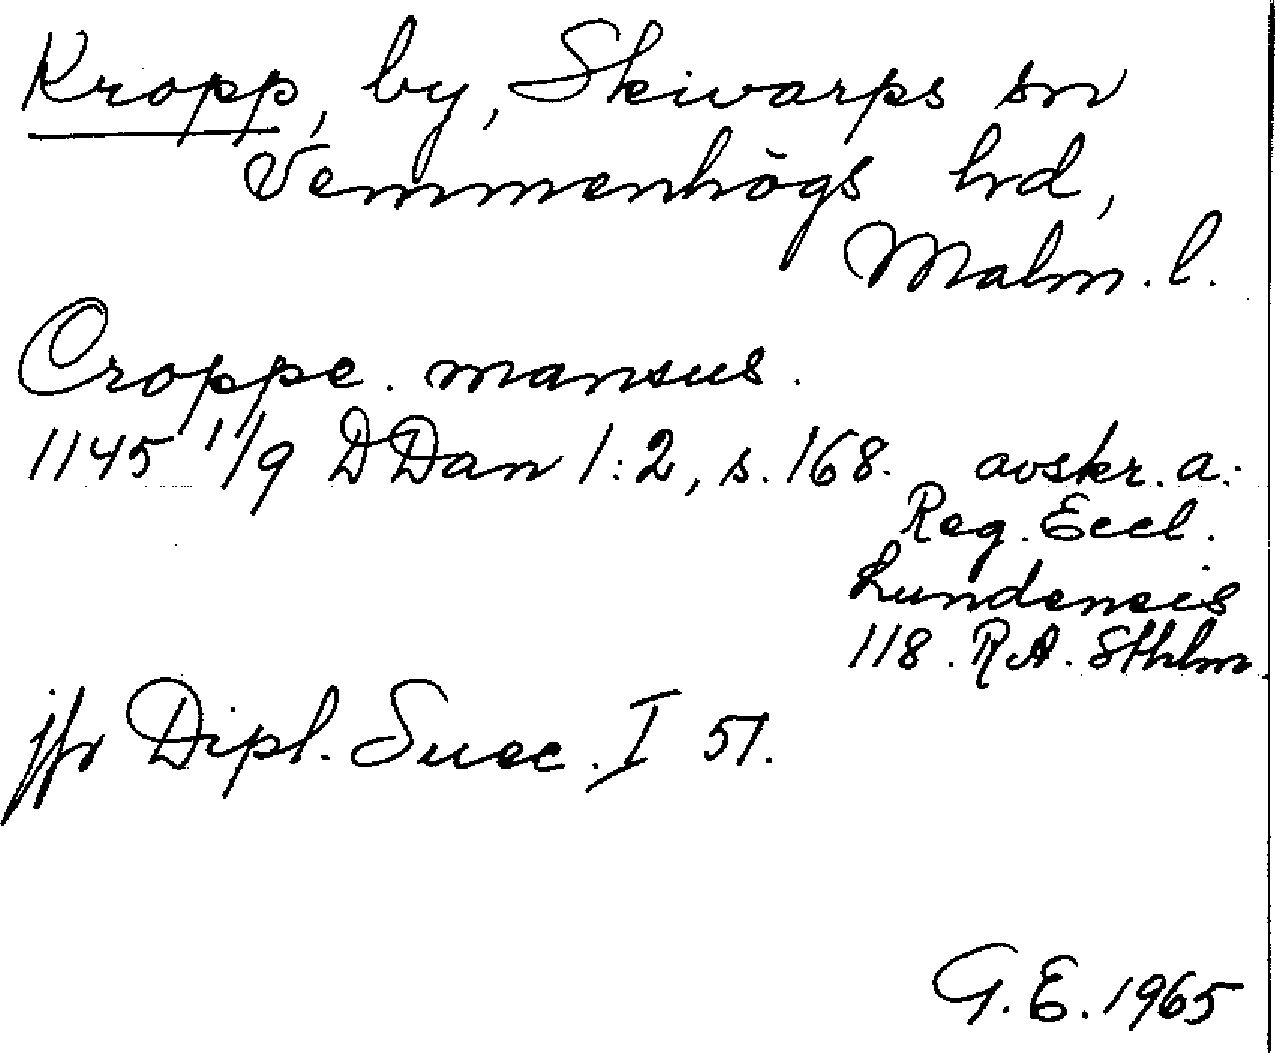 Kropp, by, Skivarps sn
Vemmenhögs hrd,
Malm. l.
Croppe. mansus.
1145 1/9 DDan 1:2, s. 168. avskr. a:
Reg. Eccl.
Lundensis
118. RA. Sthlm.
jfr Dipl. Suec. I 51.
G. E. 1965